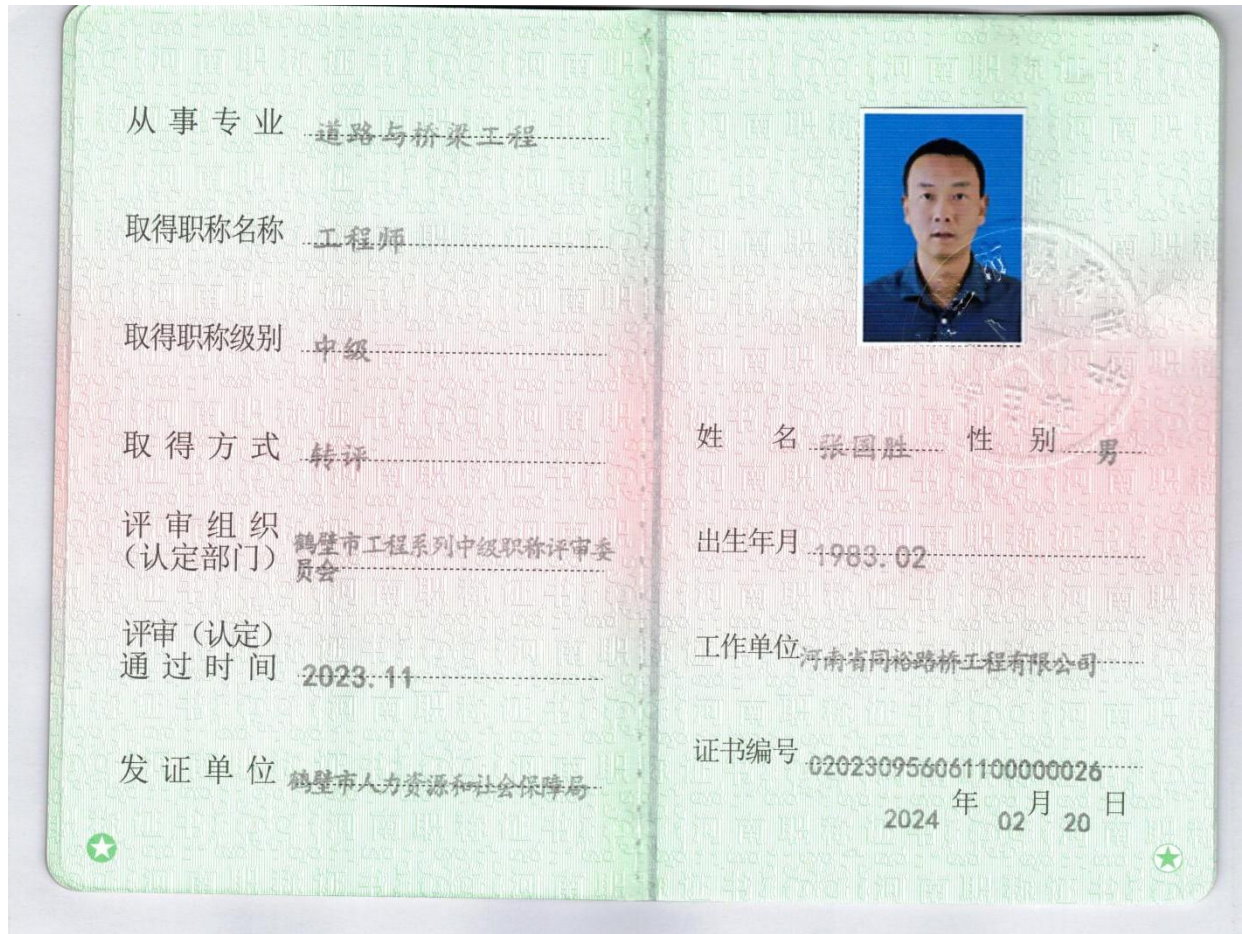 从事专业 道路与桥梁工程
取得职称名称 工程师
取得职称级别 中级
取得方式 转评
评审组织
（认定部门） 鹤壁市工程系列中级职称评审委
员会
评审（认定）
通过时间 2023.11
发证单位 鹤壁市人力资源和社会保障局
姓名 张国胜 性别 男
出生年月 1983.02
工作单位 河南省同裕路桥工程有限公司
证书编号 02023095606110000026
2024 年 02 月 20 日